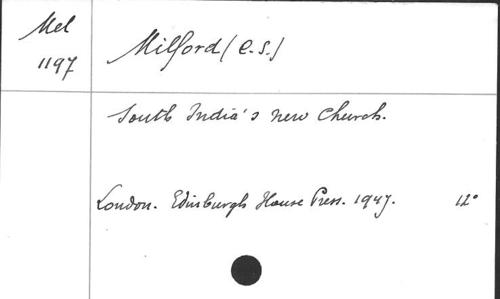 Mel
1197
Milford (C.S.)
South India's new Church.
London. Edinburgh House Press. 1947. 12°